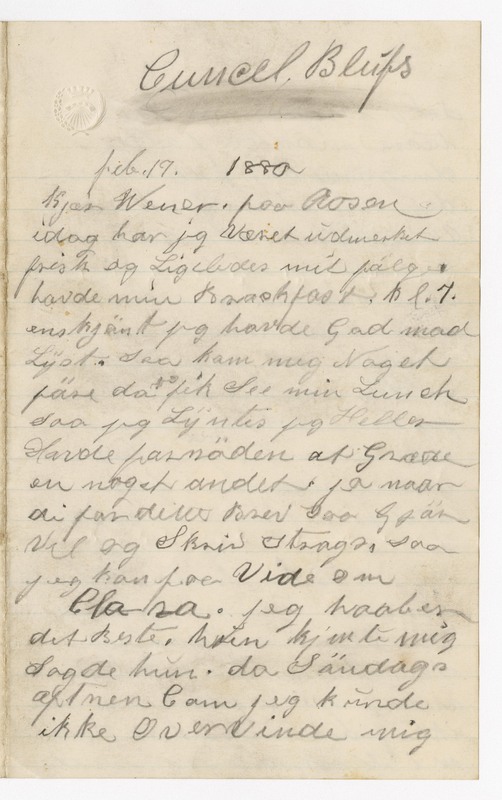 Cuncel, Blufs
feb. 19. 1880
Kjær Wener. paa Rosen
idag har jg Været udmerket
frisk og Ligeledes mit følge.
havde min Brackfast. kl. 7.
enskjönt jg havde God mad
Lÿst. Saa kom meg Noget
före da fik See min Lunch
saa jg Lÿntis jg Heller
Havde faarsöden at Græde
en noget andet. ja naar
di faar dette Brev Saa Gjör
Vel og Skriv strags. Saa
jeg kan faa Vide om
Clara. jeg haaber
det Beste. hun kjente mig
Sagde hun. da Söndags
aftnen Cam jeg kunde
ikke OverVinde mig